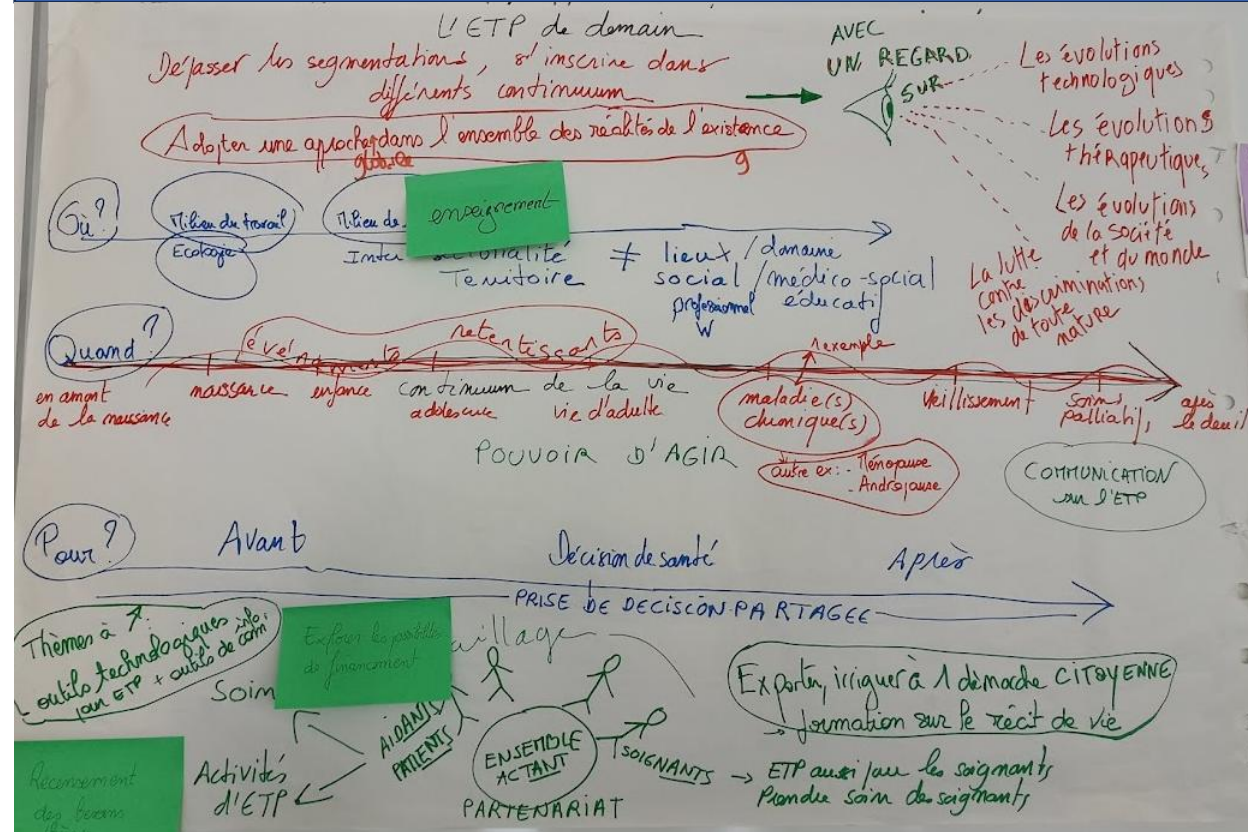 L'ETP de demain
Dépasser les segmentations, s'inscrire dans
différents continuum
Adopter une approche dans l'ensemble des réalités de l'existence
globale
AVEC
UN REGARD
SUR
Les évolutions
technologiques
Les évolutions
thérapeutiques
Les évolutions
de la société
et du monde
La lutte
contre
les discriminations
de toute
nature
Où?
Milieu du travail
Milieu de
enseignement
Ecologie
Inter
Territoire
≠ lieux / domaine
social / médico-social
professionnel
éducatif
Quand?
événements retentissants
1 exemple
en amont
de la naissance
naissance
enfance
continuum de la vie
adolescence
vie d'adulte
maladie(s)
chronique(s)
vieillissement
soins
palliatifs
après
le deuil
POUVOIR D'AGIR
autre ex: - Ménopause
- Andropause
COMMUNICATION
sur l'ETP
Pour?
Avant
Décision de santé
Après
PRISE DE DECISION PARTAGEE
Thèmes à ↗:
- outils technologiques
pour ETP + outils de com
Explorer les possibilités
de financement
Soin
AIDANTS
PATIENTS
ENSEMBLE
ACTANT
SOIGNANTS
PARTENARIAT
Activités
d'ETP
Recensement
des besoins
Exporter, irriguer à 1 démarche CITOYENNE
→ formation sur le récit de vie
→ ETP aussi pour les soignants
Prendre soin des soignants